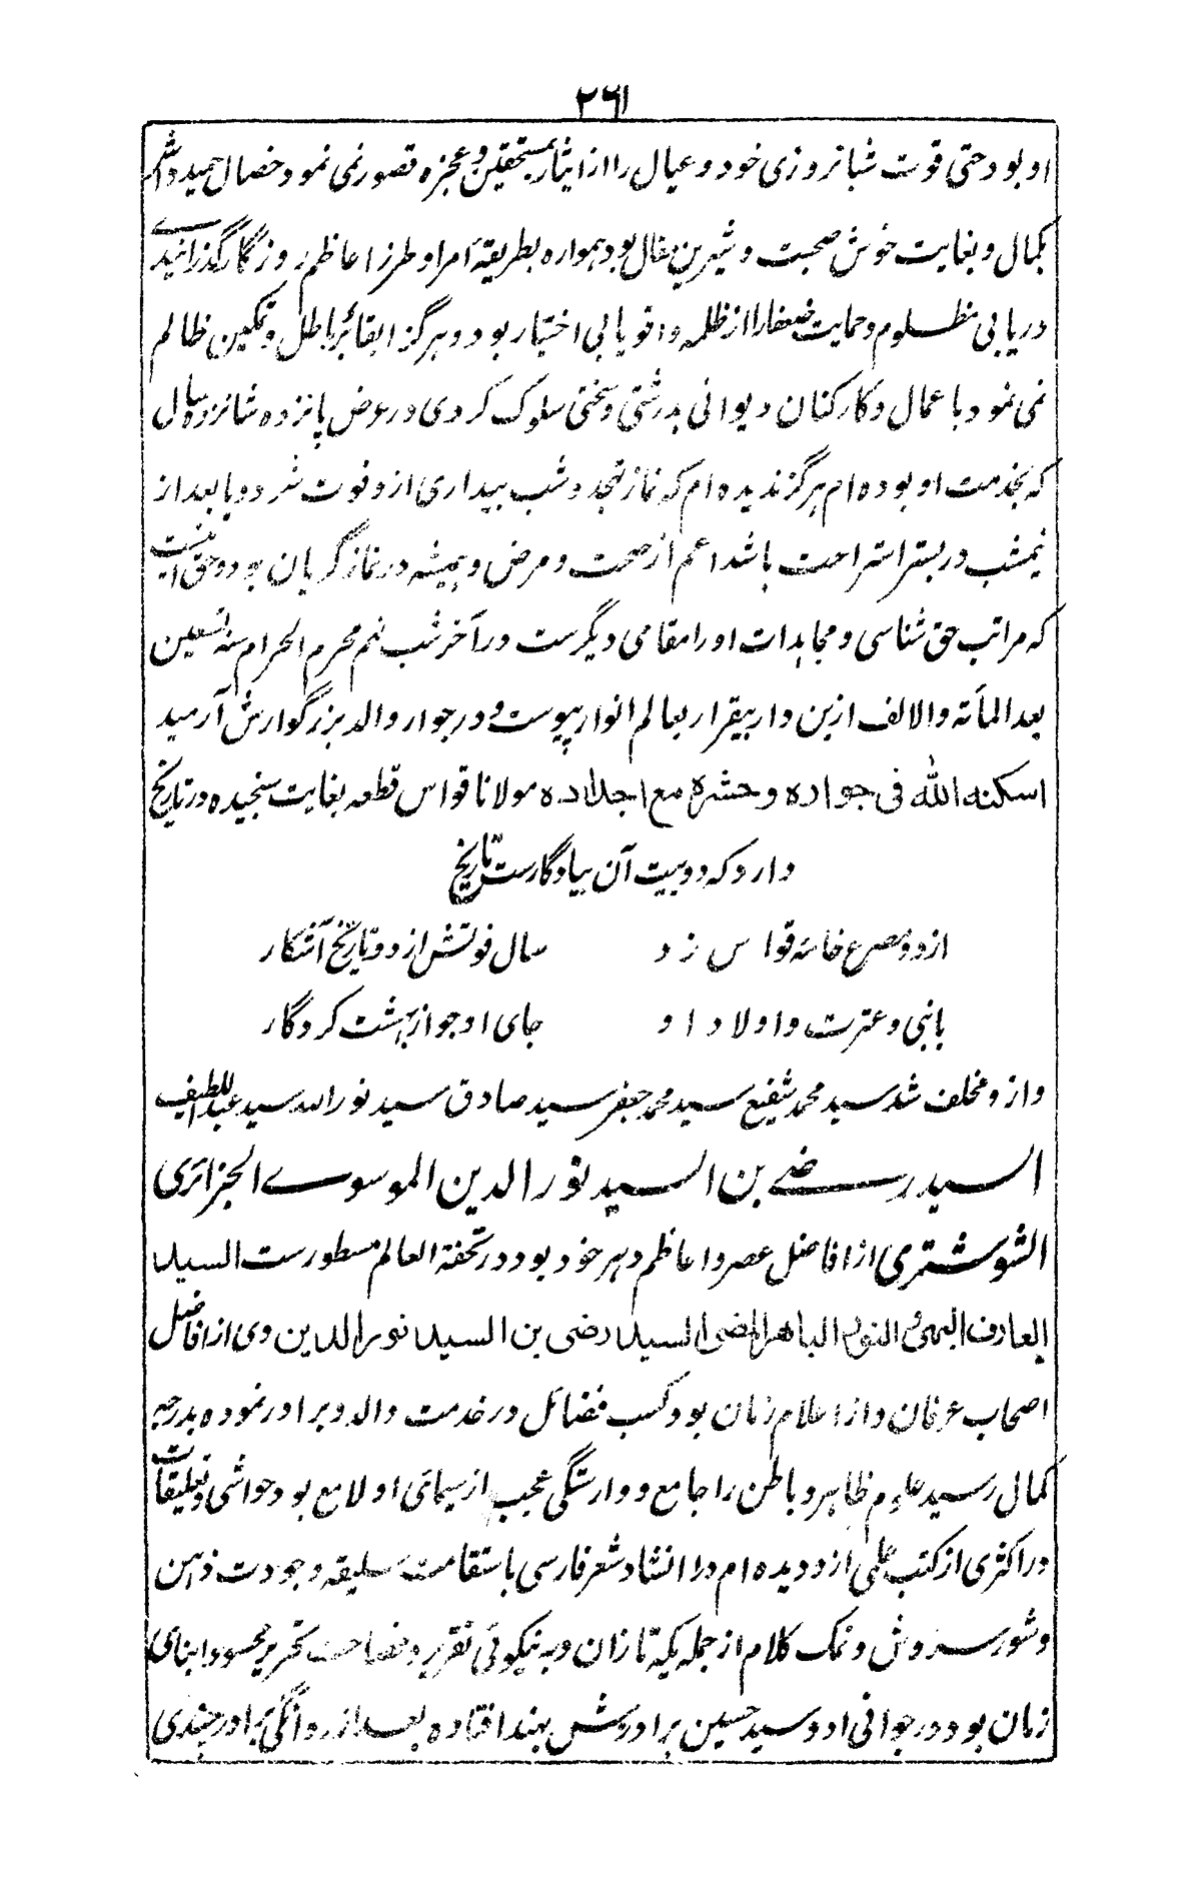 ۲۶۱
او بود حتی قوت شبانروزی خود و عیال را از ایثار بمستحقین و عجزه قصور نمی نمود خصال حمیده اش
بکمال و بغایت خوش صحبت و شیرین مقال بود همواره بطریقهٔ امرا و طرز اعاظم روزگار گذرانیدے
در یابی مظلوم و حمایت ضعفا را از ظلمه و اقویا بی اختیار بود و هرگز ابقا بر باطل و تمکین ظالم
نمی نمود با عمال و کارکنان دیوانی بدرشتی و سختی سلوک کردی در عرض پانزده شانزده سال
که بخدمت او بوده ام هرگز ندیده ام که نماز تهجد و شب بیداری ازو فوت شود و یا بعد از
نیمشب در بستر استراحت باشد اعم از صحت و مرض و همیشه در نماز گریان بود و حق اینست
که مراتب حق شناسی و مجاهدات او را مقامی دیگرست در آخر شب نهم محرم الحرام سنه تسعین
بعد المأته و الالف ازین دار بیقرار بعالم انوار پیوست و در جوار والد بزرگوارش آرمید
اسکنه الله فی جواره و حشره مع اجداده مولانا قواس قطعه بغایت سنجیده در تاریخ
دارد که دو بیت آن بیادگارست تاریخ
از دو مصرع خامهٔ قواس زد سال فوتش از دو تاریخ آشکار
با نبی و عترت و اولاد او جای او جو از بهشت کردگار
و ازو مخلف شد سید محمد شفیع سید محمد جعفر سید صادق سید نور الله سید عبداللطیف
السید رضے بن السید نور الدین الموسوے الجزائری
الشوشتری از افاضل عصر و اعاظم دهر خود بود در تحفة العالم مسطورست السید
العارف البهی النور الباهر المضی السید رضی بن السید نور الدین وی از افاضل
اصحاب عرفان و از اعلام زمان بود کسب فضائل در خدمت والد و برادر نموده بدرجهٔ
کمال رسید علوم ظاهر و باطن را جامع و وارستگی عجیب از سیمای او لامع بود حواشی و تعلیقات
در اکثری از کتب علمی ازو دیده ام در انشاد شعر فارسی باستقامت سلیقه و جودت ذهن
و شور سروش و نمک کلام از جمله یکه تازان و به نیکوئی تقریر و فصاحت تحریر محسود ابنای
زمان بود در جوانی او و سید حسین برادرش بهند افتاده بعد از روانگی برادر چندی